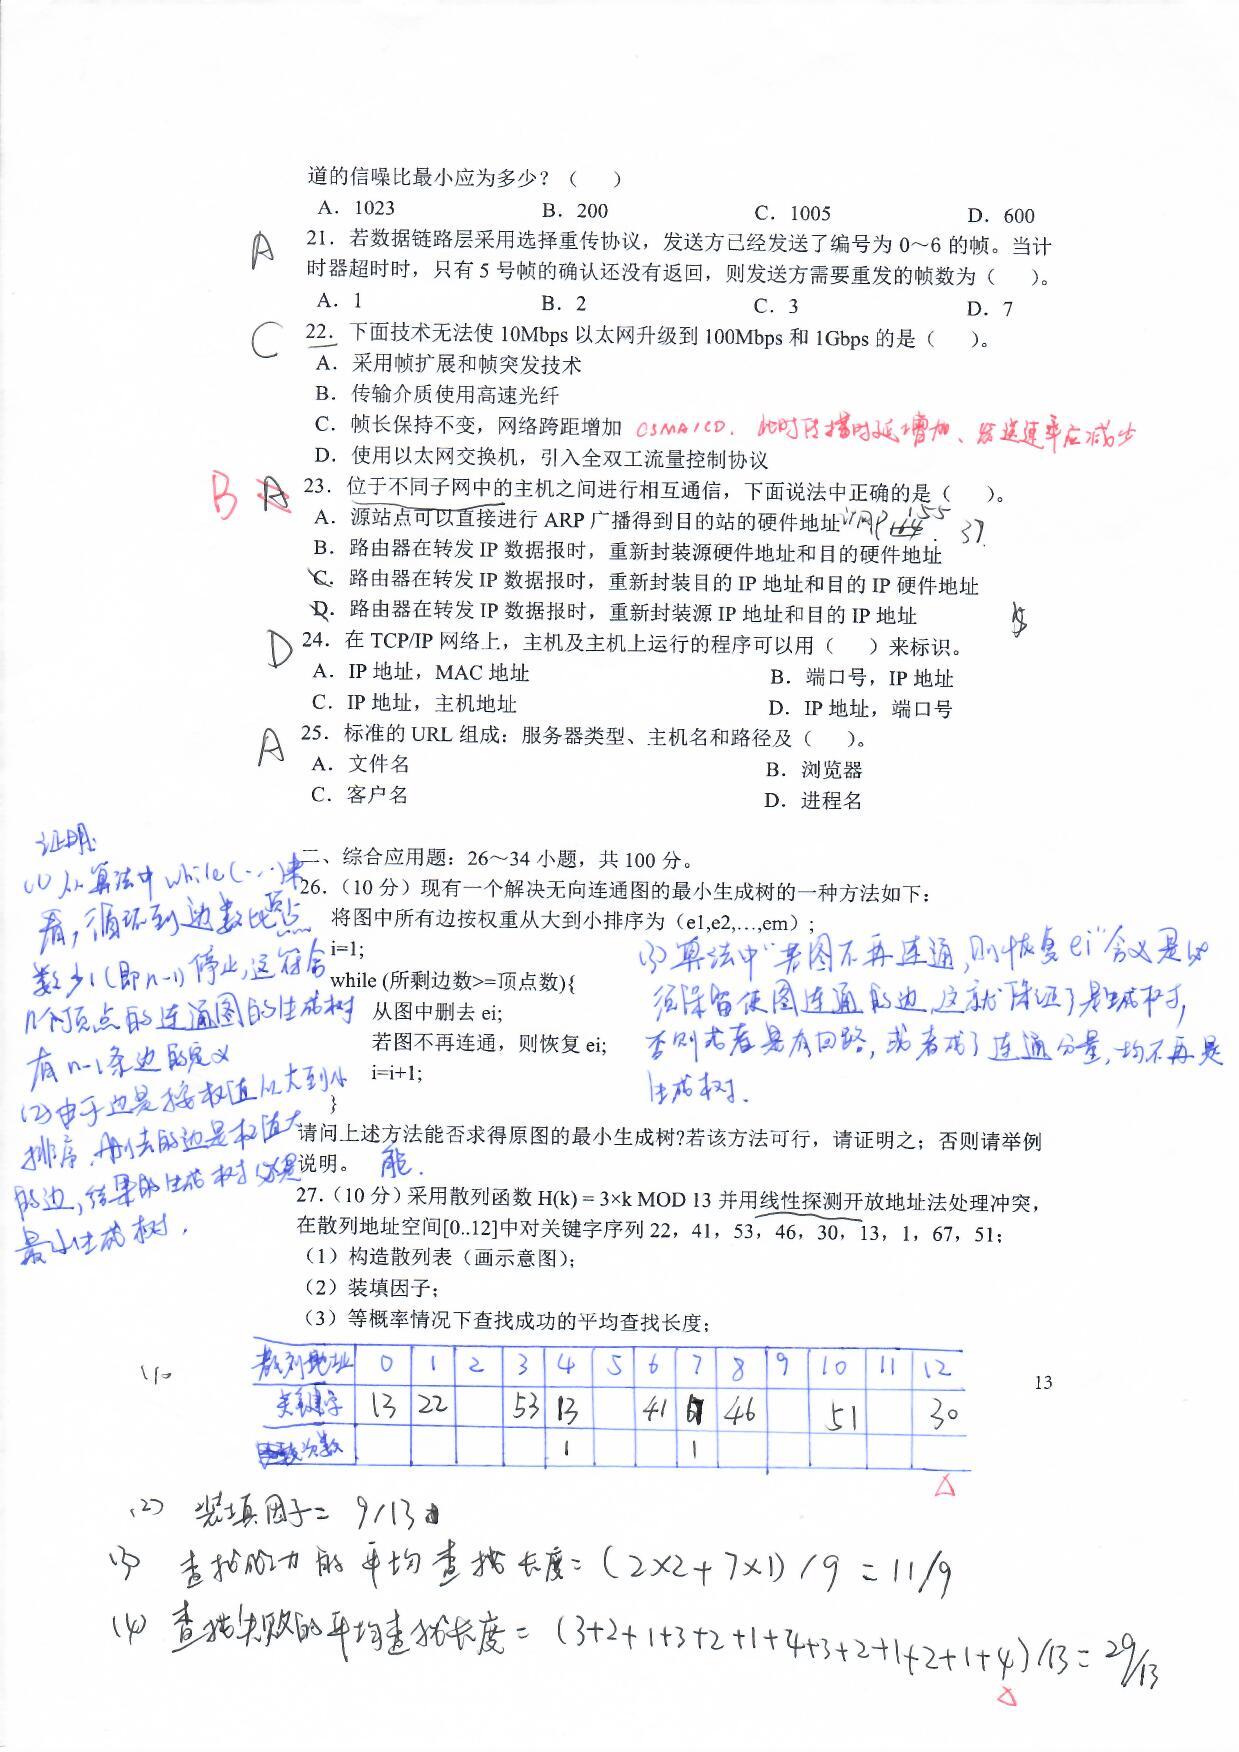 道的信噪比最小应为多少？（　　）
A．1023　B．200　C．1005　D．600
A
21．若数据链路层采用选择重传协议，发送方已经发送了编号为 0～6 的帧。当计
时器超时时，只有 5 号帧的确认还没有返回，则发送方需要重发的帧数为（　　）。
A．1　B．2　C．3　D．7
C
22．下面技术无法使 10Mbps 以太网升级到 100Mbps 和 1Gbps 的是（　　）。
A．采用帧扩展和帧突发技术
B．传输介质使用高速光纤
C．帧长保持不变，网络跨距增加 CSMA/CD．此时传播时延增加、发送速率应减少
D．使用以太网交换机，引入全双工流量控制协议
B A
23．位于不同子网中的主机之间进行相互通信，下面说法中正确的是（　　）。
A．源站点可以直接进行 ARP 广播得到目的站的硬件地址 155 37
B．路由器在转发 IP 数据报时，重新封装源硬件地址和目的硬件地址
C．路由器在转发 IP 数据报时，重新封装目的 IP 地址和目的 IP 硬件地址
D．路由器在转发 IP 数据报时，重新封装源 IP 地址和目的 IP 地址
D
24．在 TCP/IP 网络上，主机及主机上运行的程序可以用（　　）来标识。
A．IP 地址，MAC 地址　B．端口号，IP 地址
C．IP 地址，主机地址　D．IP 地址，端口号
A
25．标准的 URL 组成：服务器类型、主机名和路径及（　　）。
A．文件名　B．浏览器
C．客户名　D．进程名
二、综合应用题：26～34 小题，共 100 分。
26．（10 分）现有一个解决无向连通图的最小生成树的一种方法如下：
将图中所有边按权重从大到小排序为（e1,e2,…,em）；
i=1;
while (所剩边数>=顶点数){
从图中删去 ei;
若图不再连通，则恢复 ei;
i=i+1;
}
请问上述方法能否求得原图的最小生成树?若该方法可行，请证明之；否则请举例
说明。 能．
证明：
(1) 从算法中 while(…)来
看，循环到边数比顶点
数少1(即n-1)停止，这符合
n个顶点的连通图的生成树
有n-1条边的定义
(2)由于边是按权值从大到小
排序，删去的边是权值大
的边，结果的生成树必是
最小生成树．
(3) 算法中“若图不再连通，则恢复ei”含义是必
须保留使图连通的边，这就保证了是生成树，
否则或者是有回路，或者成了连通分量，均不再是
生成树．
27．（10 分）采用散列函数 H(k) = 3×k MOD 13 并用线性探测开放地址法处理冲突，
在散列地址空间[0..12]中对关键字序列 22，41，53，46，30，13，1，67，51；
（1）构造散列表（画示意图）；
（2）装填因子；
（3）等概率情况下查找成功的平均查找长度；
(1)
散列地址 0 1 2 3 4 5 6 7 8 9 10 11 12
关键字 13 22 53 13 41 46 51 30
次数 1 1
13
(2) 装填因子= 9/13
(3) 查找成功的平均查找长度=(2×2+7×1)/9 = 11/9
(4) 查找失败的平均查找长度 = (3+2+1+3+2+1+4+3+2+1+2+1+4)/13 = 29/13